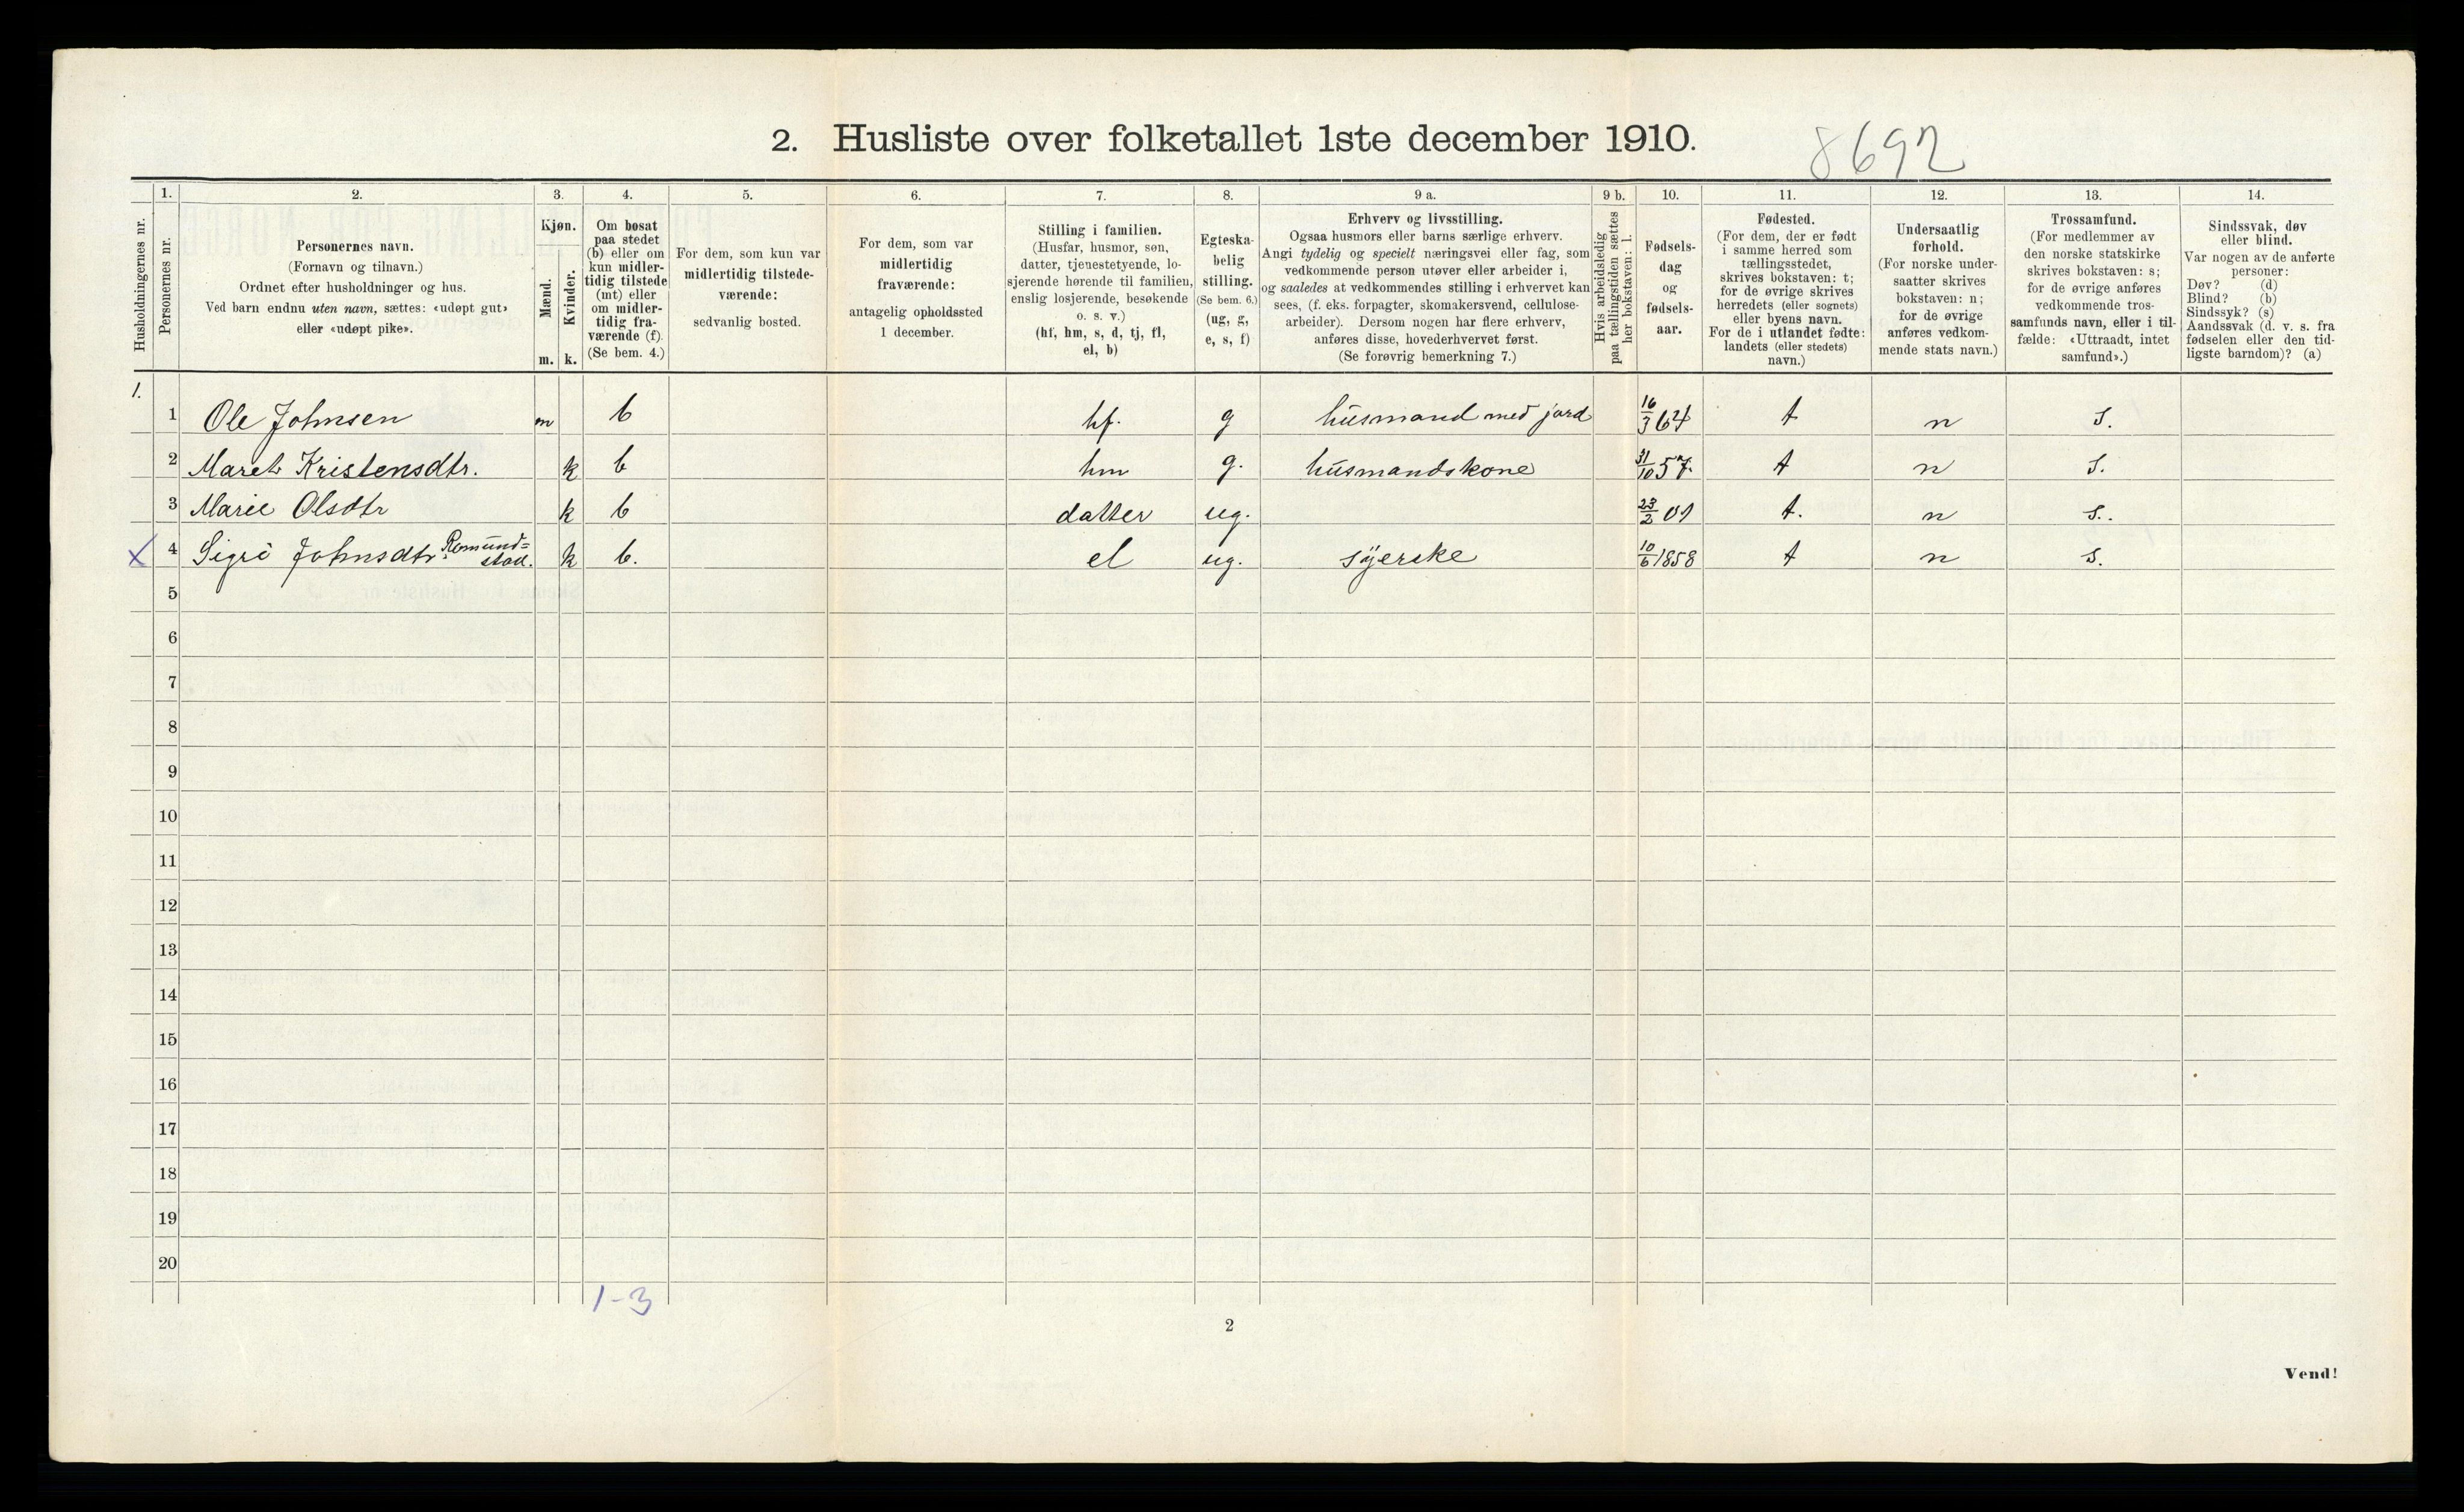 2. Husliste over folketallet 1ste december 1910.
8692
1. 2. 3. 4. 5. 6. 7. 8. 9 a. 9 b. 10. 11. 12. 13. 14.
Husholdningernes nr.
Personernes nr.
Personernes navn.
(Fornavn og tilnavn.)
Ordnet efter husholdninger og hus.
Ved barn endnu uten navn, sættes: «udøpt gut»
eller «udøpt pike».
Kjøn.
Mænd.
Kvinder.
m. k.
Om bosat
paa stedet
(b) eller om
kun midler-
tidig tilstede
(mt) eller
om midler-
tidig fra-
værende (f).
(Se bem. 4.)
For dem, som kun var
midlertidig tilstede-
værende:
sedvanlig bosted.
For dem, som var
midlertidig
fraværende:
antagelig opholdssted
1 december.
Stilling i familien.
(Husfar, husmor, søn,
datter, tjenestetyende, lo-
sjerende hørende til familien,
enslig losjerende, besøkende
o. s. v.)
(hf, hm, s, d, tj, fl,
el, b)
Egteska-
belig
stilling.
(Se bem. 6.)
(ug, g,
e, s, f)
Erhverv og livsstilling.
Ogsaa husmors eller barns særlige erhverv.
Angi tydelig og specielt næringsvei eller fag, som
vedkommende person utøver eller arbeider i,
og saaledes at vedkommendes stilling i erhvervet kan
sees, (f. eks. forpagter, skomakersvend, cellulose-
arbeider). Dersom nogen har flere erhverv,
anføres disse, hovederhvervet først.
(Se forøvrig bemerkning 7.)
Hvis arbeidsledig
paa tællingstiden sættes
her bokstaven: l.
Fødsels-
dag
og
fødsels-
aar.
Fødested.
(For dem, der er født
i samme herred som
tællingsstedet,
skrives bokstaven: t;
for de øvrige skrives
herredets (eller sognets)
eller byens navn.
For de i utlandet fødte:
landets (eller stedets)
navn.)
Undersaatlig
forhold.
(For norske under-
saatter skrives
bokstaven: n;
for de øvrige
anføres vedkom-
mende stats navn.)
Trossamfund.
(For medlemmer av
den norske statskirke
skrives bokstaven: s;
for de øvrige anføres
vedkommende tros-
samfunds navn, eller i til-
fælde: «Uttraadt, intet
samfund».)
Sindssvak, døv
eller blind.
Var nogen av de anførte
personer:
Døv? (d)
Blind? (b)
Sindssyk? (s)
Aandssvak (d. v. s. fra
fødselen eller den tid-
ligste barndom)? (a)
1.
1 Ole Johnsen m b hf. g husmand med jord 16/3 64 t n s.
2 Maret Kristensdtr. k b hm g. husmandskone 31/10 57. t n s.
3 Marie Olsdtr k b datter ug. 23/2 01 t. n s.
X 4 Sigri Johnsdtr Romund=
stad. k b. el ug. syerske 10/6 1858 t n s.
5
6
7
8
9
10
11
12
13
14
15
16
17
18
19
20
1-3
2
Vend!